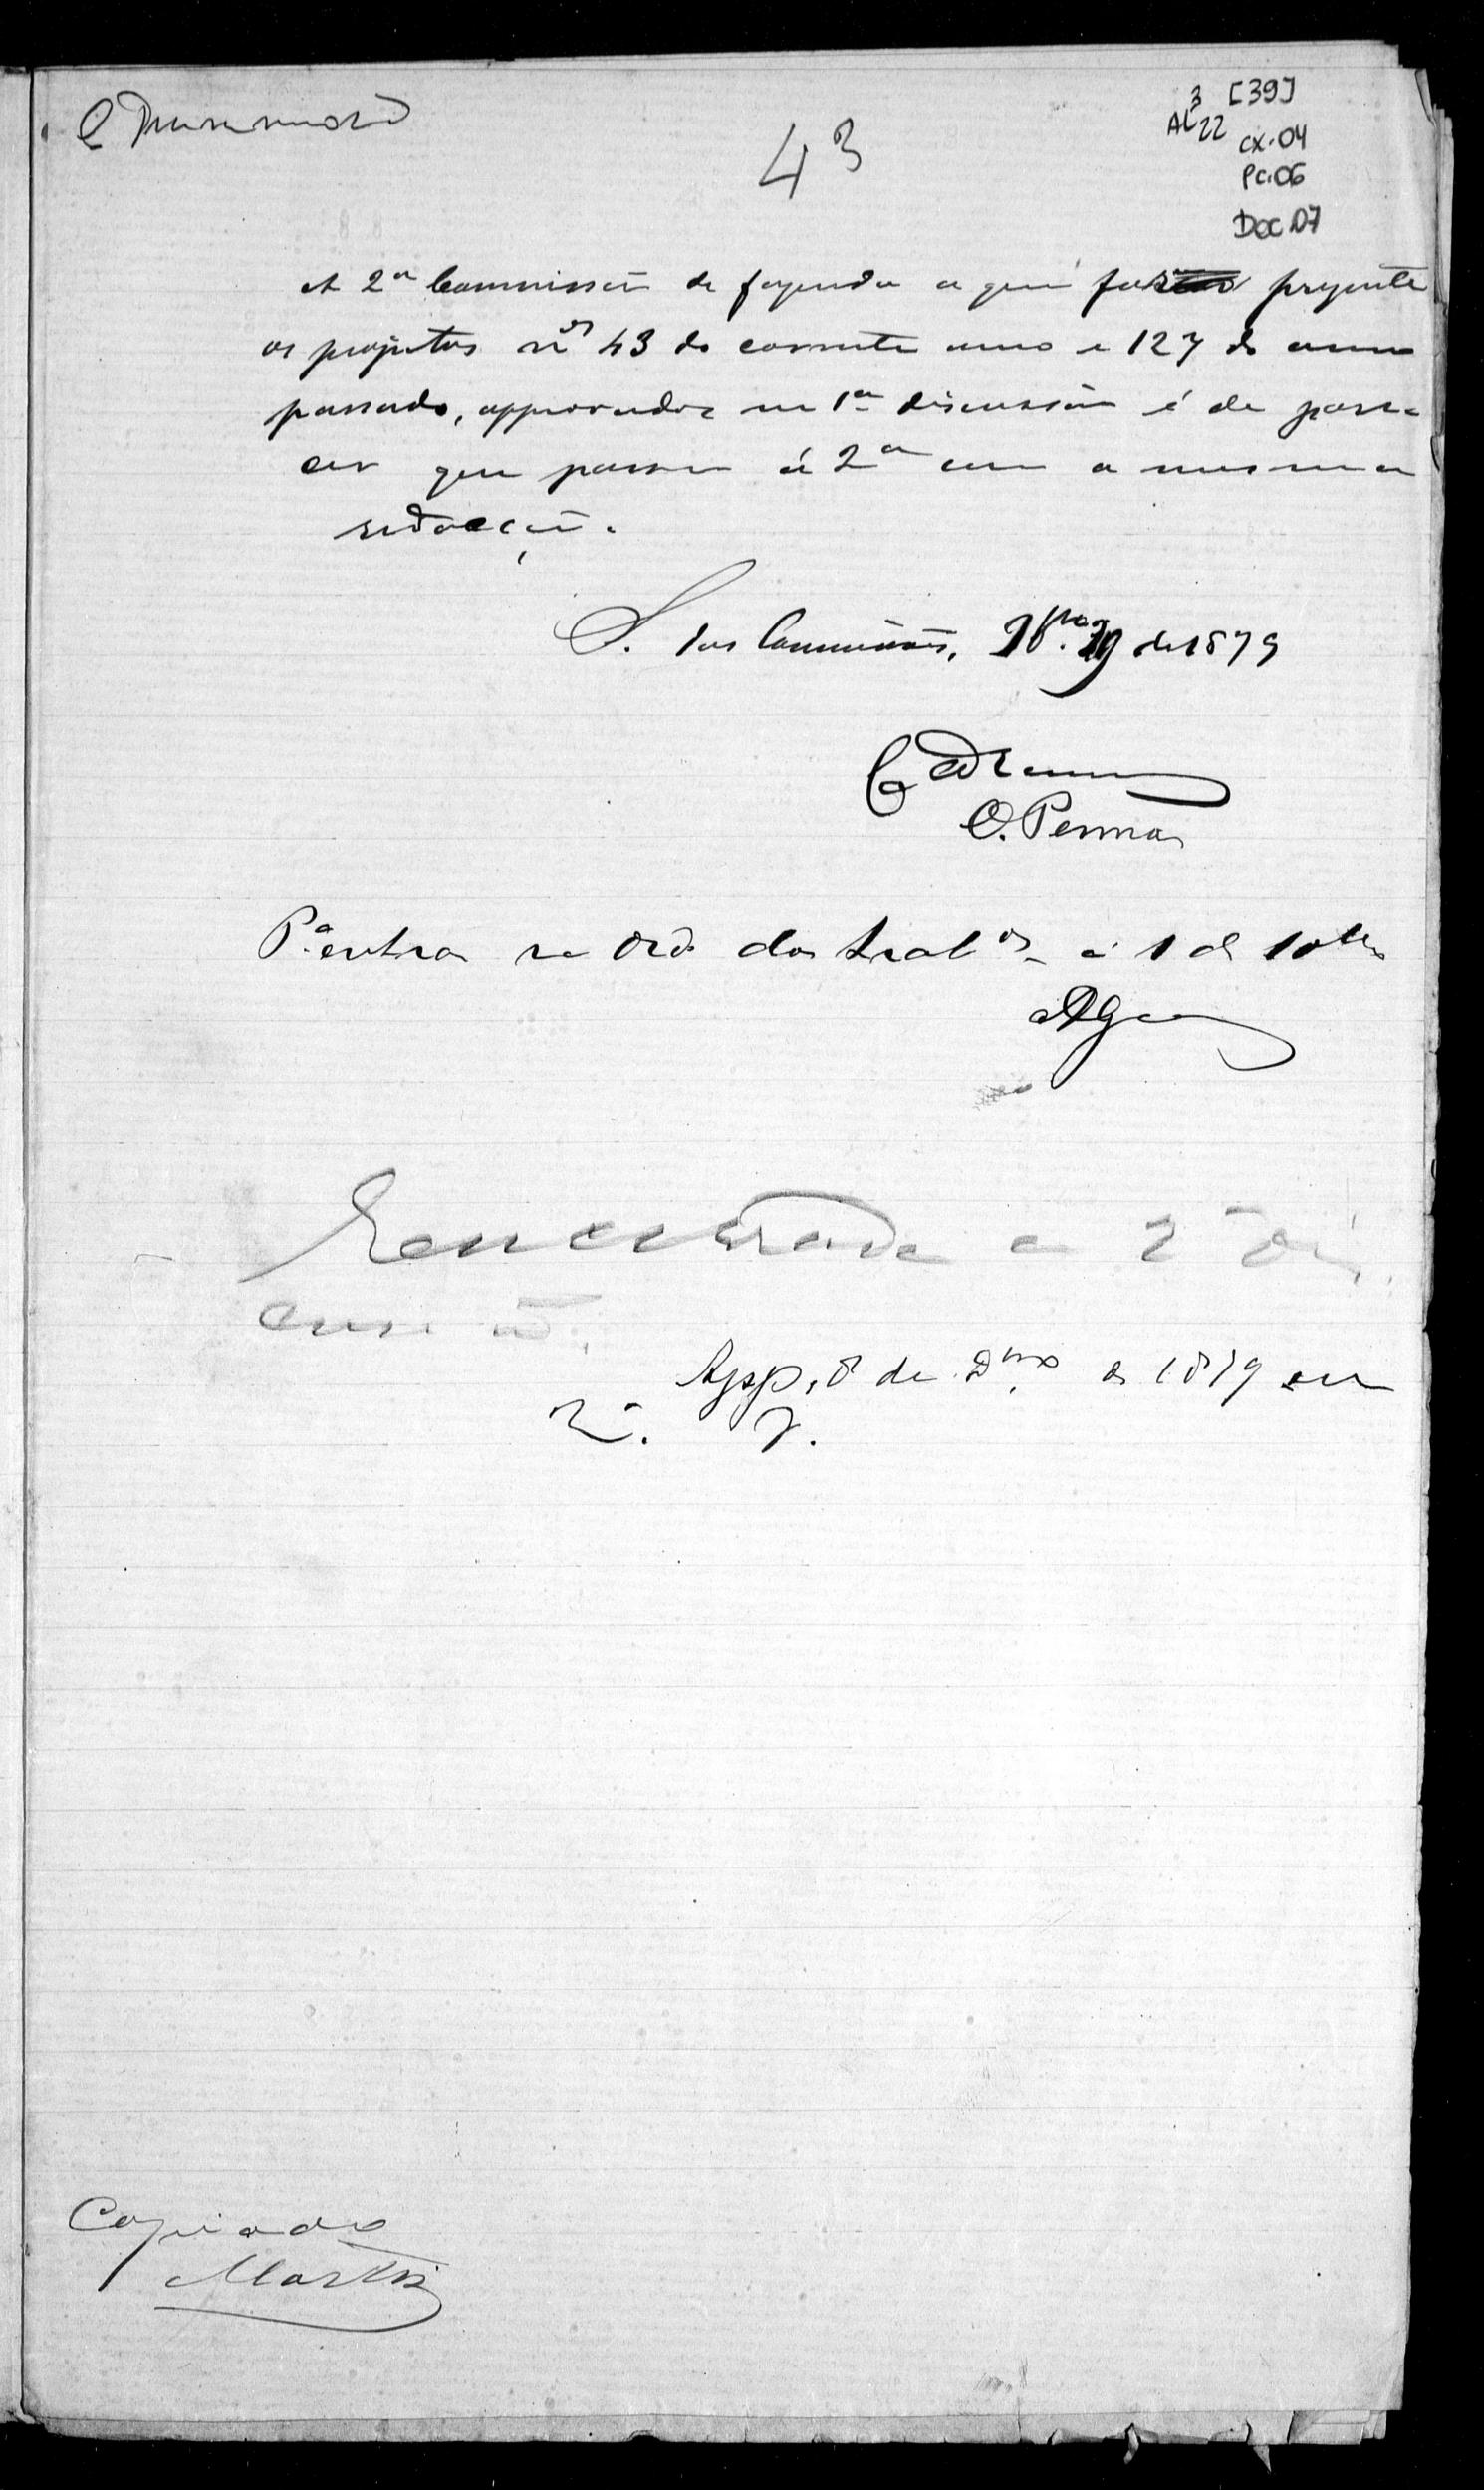 C Drummond
43
AL 3 22 [39]
cx.04
Pc.06
Doc 07
A 2ª Commissão de fazenda a quem forão presente
os projetos nos 43 do corrente anno e 127 do anno
passado, approvados em 1ª discussão é de pare-
cer que passem á 2ª com a mesma
redacção.
S. das Commissões, 9bro 29 de 1879
C Drumm
O. Penna
Pª entrar na Ord. dos trabos a 1 de 10bro
Encerrada a 2ª dis
cussão.
App. 8 de Dbro de 1879 em
2ª.
Copiado
Martins